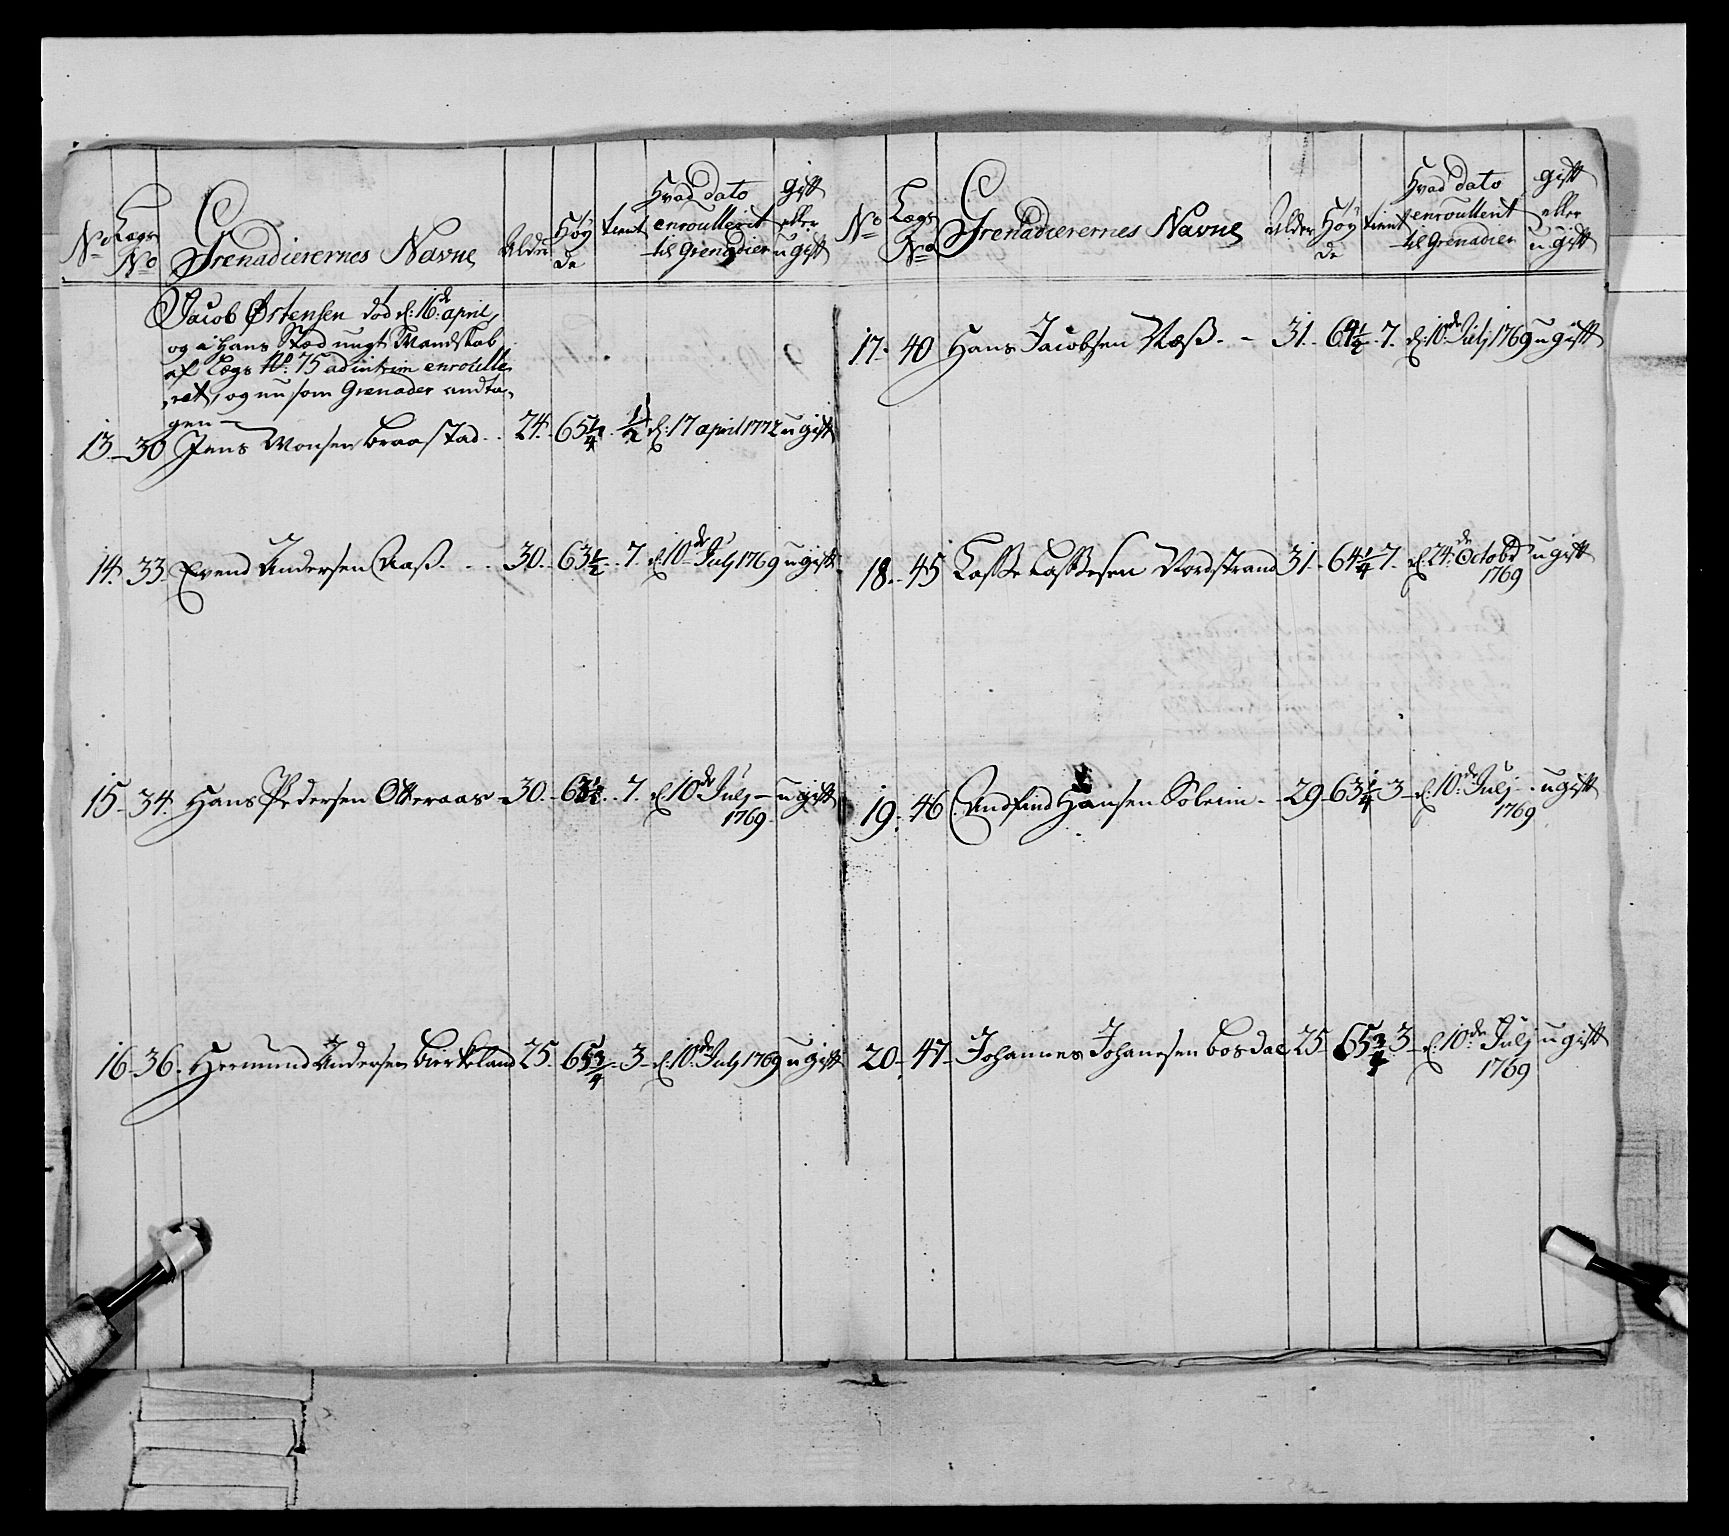 No Lægs No Grenadierernes Navne Alder Høyde tient Hvad dato enroullerit til Grenadier gift eller ugift
Jacob Østensen død d: 16de april
og i Hans Stæd ungt Mandskab
af Lægs No: 75 ad intrim enroulle-
ret, og nu som Grenader andta-
gen
13 30 Jens Monsen Braastad 24 65 1/4 1/2 d: 17 april 1772 ugift
14 33 Evend Andersen Aaß 30 63 1/2 7 d: 10de Julj 1769 ugift
15 34 Hans Pedersen Otteraas 30 63 1/2 7 d: 10de Julj 1769 ugift
16 36 Hermund Andersen Birkeland 25 65 3/4 3 d: 10de Julj 1769 ugift
No Lægs No Grenadierernes Navne Alder Høyde tient Hvad dato enroullerit til Grenadier gift eller ugift
17 40 Hans Jacobsen Næß 31 64 1/2 7 d: 10de Julj 1769 ugift
18 45 Lasse Lassesen Nordstrand 31 64 1/4 7 d: 24de Octobr 1769 ugift
19 46 Andfind Hansen Soleim 29 63 1/4 3 d: 10de Julj 1769 ugift
20 47 Johannes Johanesen Bosdal 25 65 3/4 3 d: 10de Julj 1769 ugift